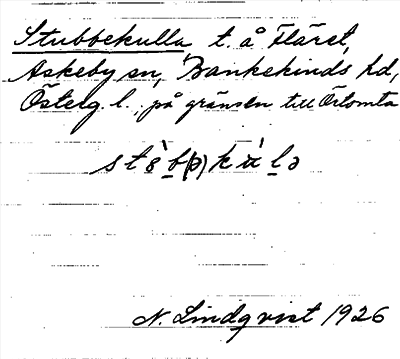 Stubbekulla t. å Fläret,
Askeby sn, Bankekinds hd,
Österg. l., på gränsen till Örtomta
N. Lindqvist 1926